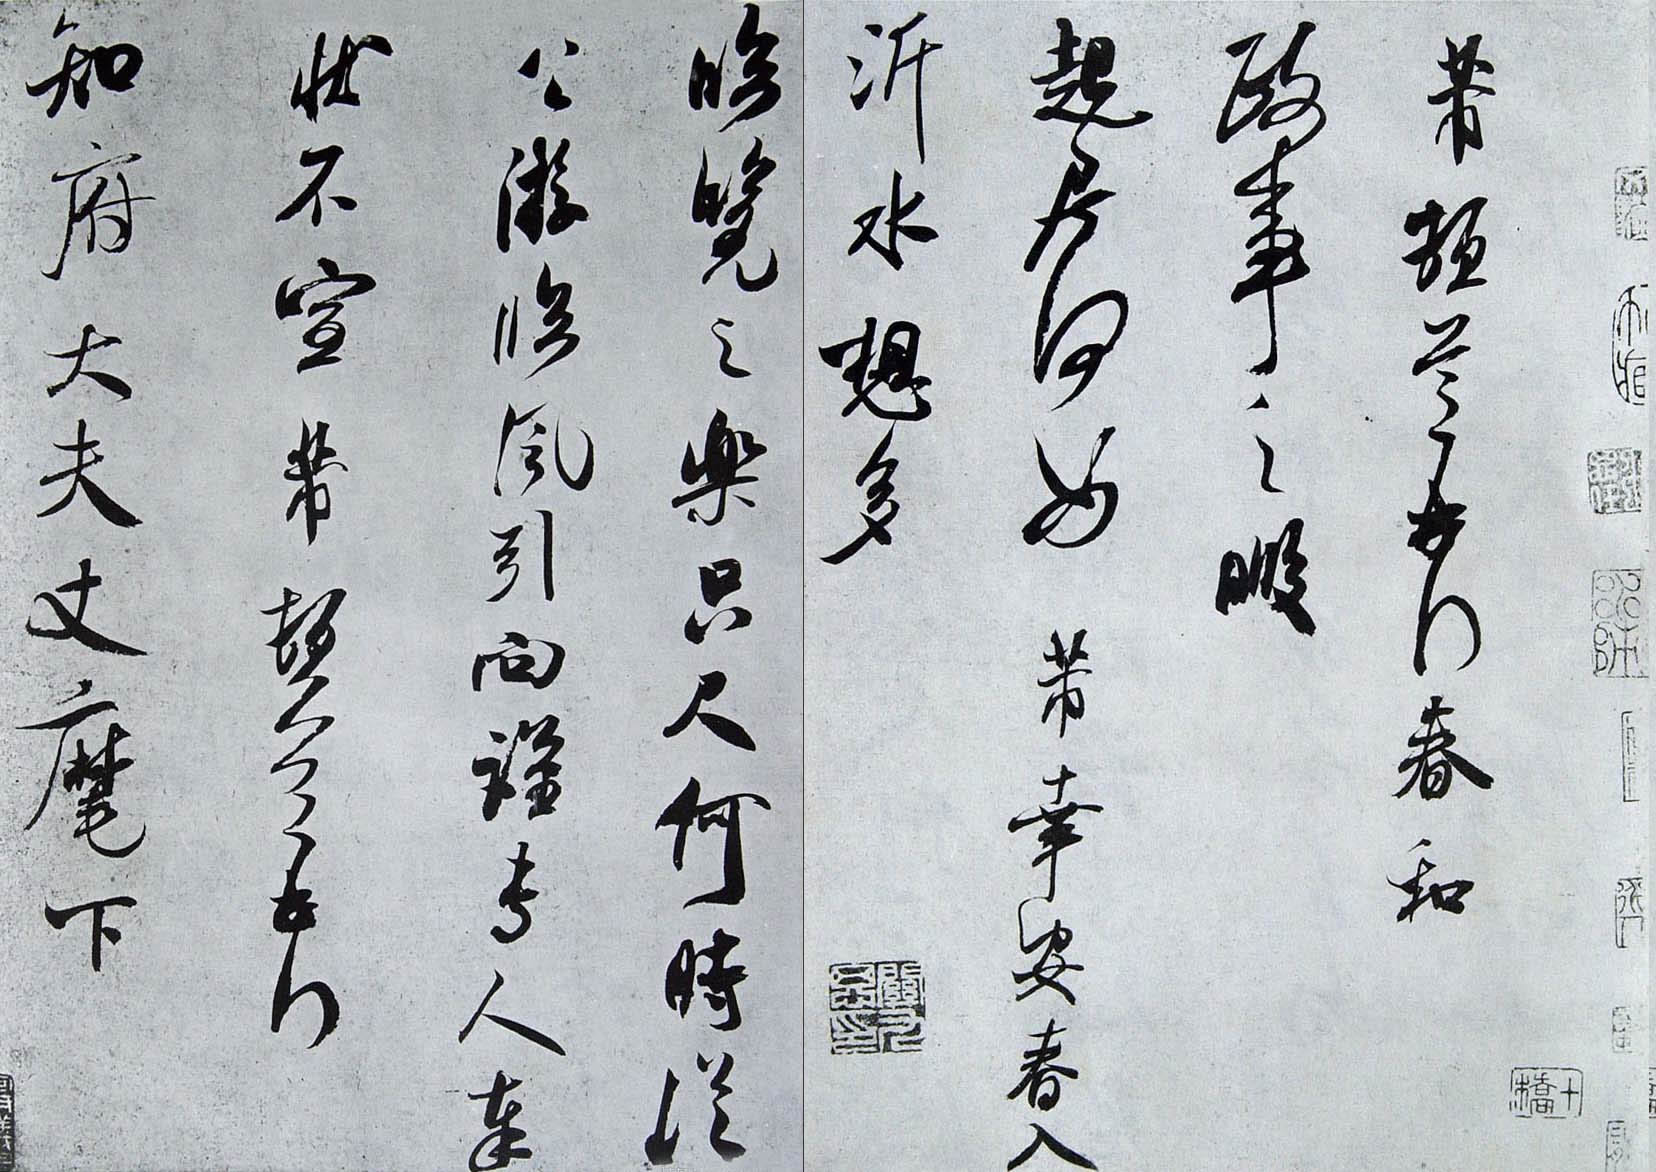 芾頓首再拜春和
政事之暇
起居何如芾幸安春入
沂水想多
臨覽之樂只尺何時從
公游臨風引向謹專人奉
狀不宣芾頓首再拜
知府大夫丈麾下